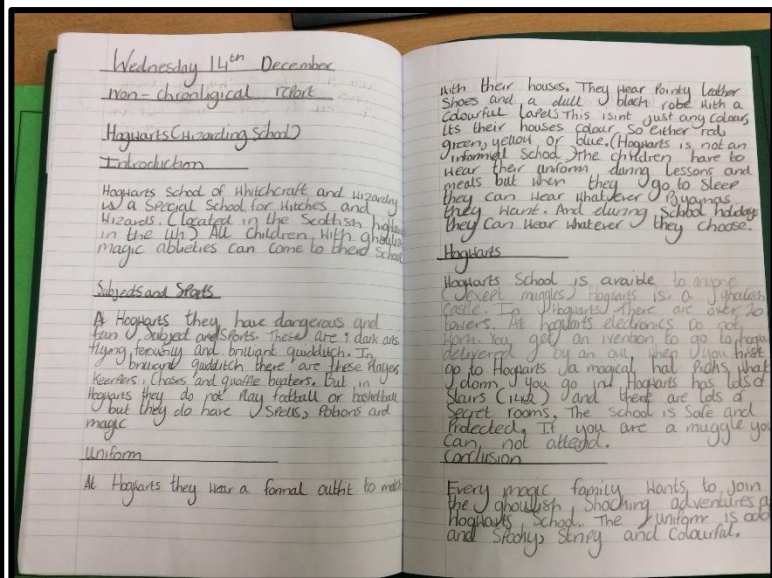 Wednesday 14th December
non-chronligical report
Hogwarts (Wizarding School)
Introduction
Hogwarts School of Whitchcraft and Wizardry
is a Special School for Witches and
Wizards. (Located in the Scottish
in the UK) All children with
magic ablieties can come to School
Subjects and Sports
A Hogwarts they have dangerous and
fun Subject and Sports. These are; dark arts
flying and briliant quidditch. In
briliant quidditch there are these Players
Keepers, Chases and quaffle beaters. But in
Hogwarts they do not Play football or basketball
but they do have Spells, Potions and
magic
Uniform
At Hogwarts they wear a formal outfit to match
with their houses. They wear Pointy Leather
Shoes and a dull black robe with a
Colourful lapels This isint just any Colour,
its their houses colour so either red,
green, yellow or blue. (Hogwarts is not an
informal School.) The children have to
wear their uniform during lessons and
meals but when they go to Sleep
they can wear whatever Pyjamas
they want. And during School holidays
they can wear whatever they choose.
Hogwarts
Hogwarts School is avaible to anyone
(exept muggles) Hogwarts is a ghoulish
Castle. In Hogwarts There are over 20
towers. At hogwarts electronics do not
Work. You get an to go to
delivered by an owl when you first
go to Hogwarts a magical hat Picks what
you go in. Hogwarts has lots of
Stairs (142) and there are lots of
Secret rooms. The School is Safe and
Protected. If you are a muggle you
Can, not attend.
Conclusion
Every magic family Wants to join
the ghoulish Shocking adventures
Hogwarts School. The Uniform is odd
and Spooky, Stripy and Colourful.